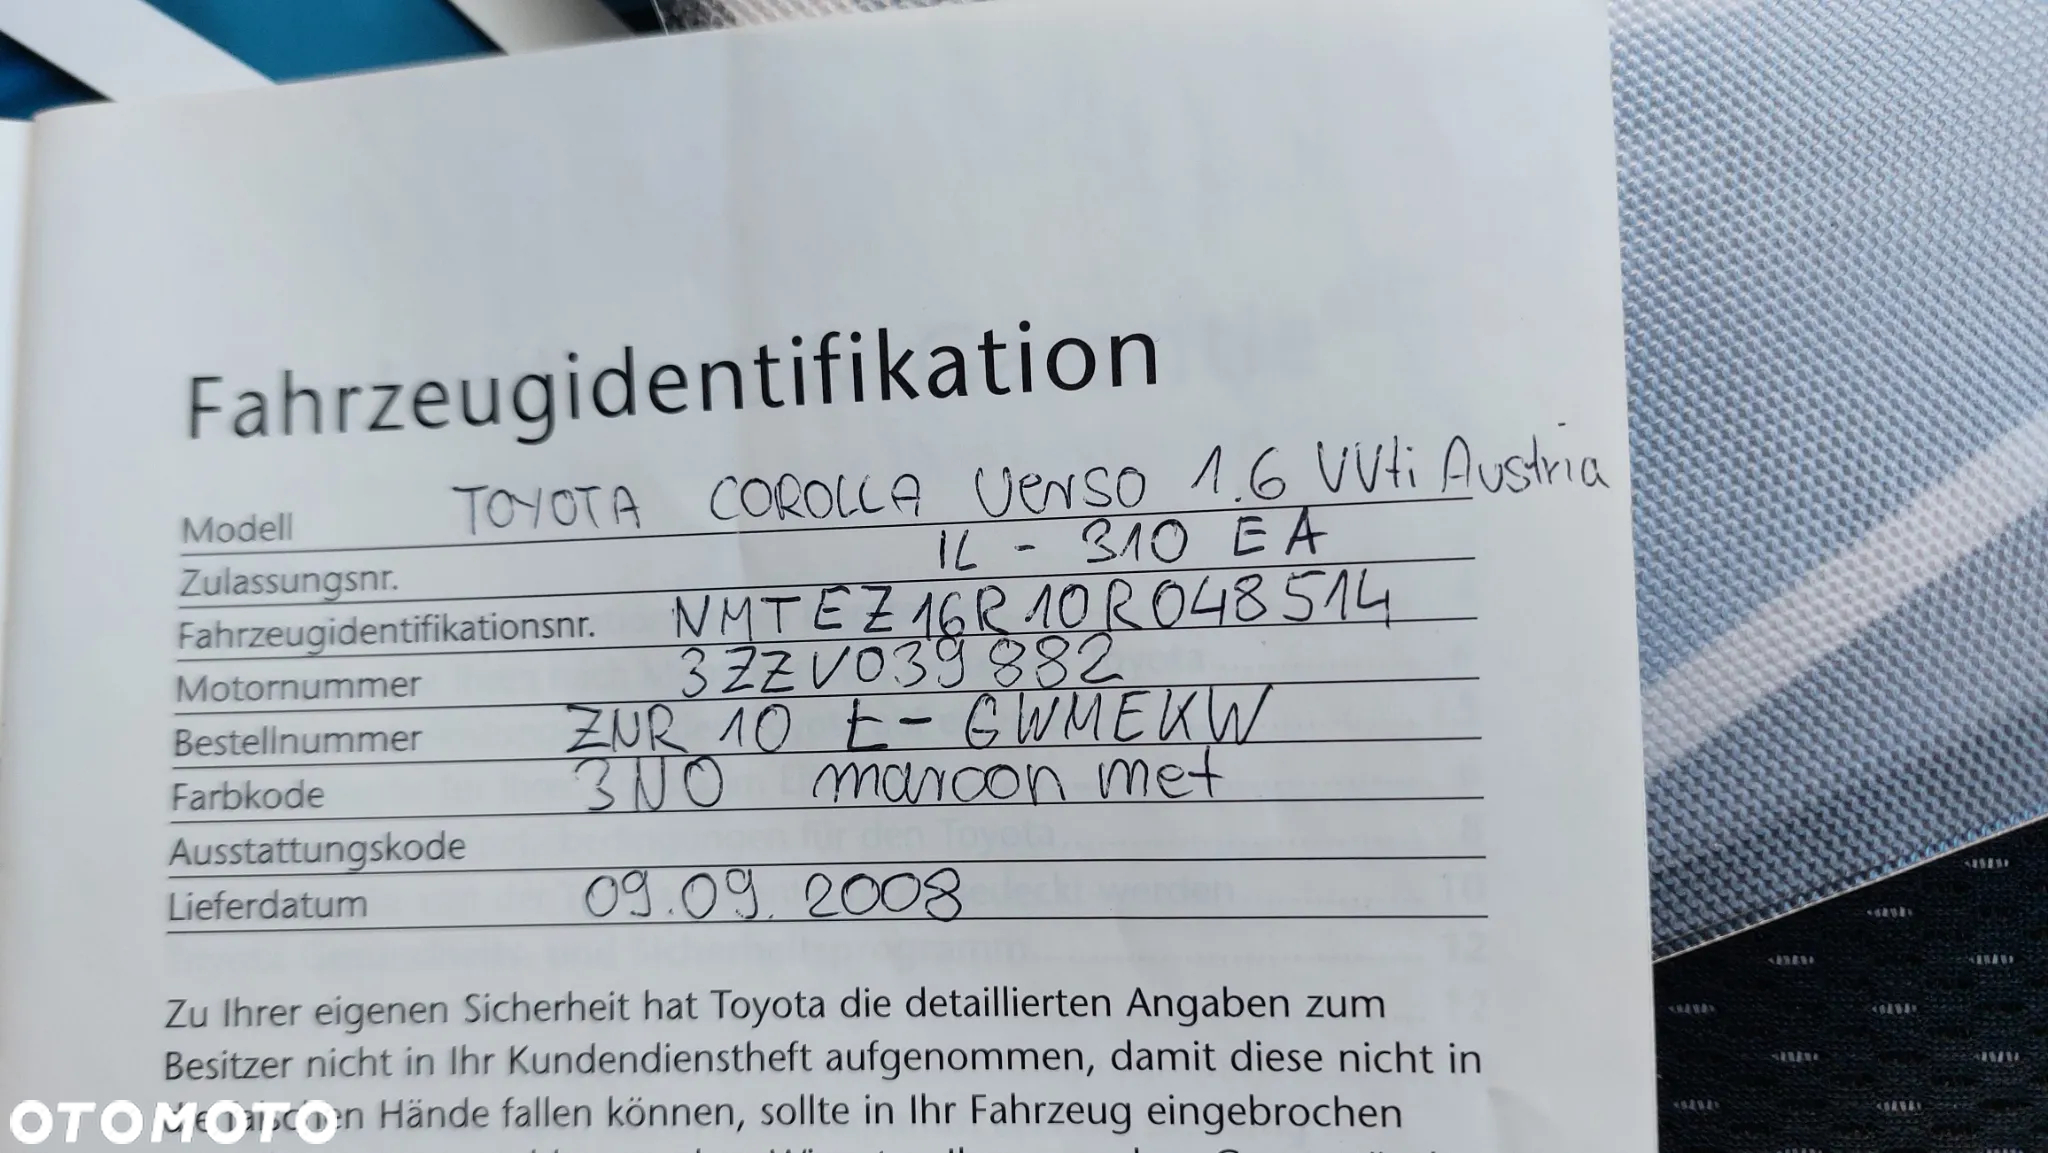 Fahrzeugidentifikation
Modell TOYOTA COROLLA Verso 1.6 VVti Austria
Zulassungsnr. IL - 310 EA
Fahrzeugidentifikationsnr. NMTEZ16R10R048514
Motornummer 3ZZV039882
Bestellnummer ZNR 10 L - GWMEKW
Farbkode 3NO maroon met
Ausstattungskode
Lieferdatum 09.09.2008
Zu Ihrer eigenen Sicherheit hat Toyota die detaillierten Angaben zum
Besitzer nicht in Ihr Kundendienstheft aufgenommen, damit diese nicht in
die falschen Hände fallen können, sollte in Ihr Fahrzeug eingebrochen
OTOMOTO